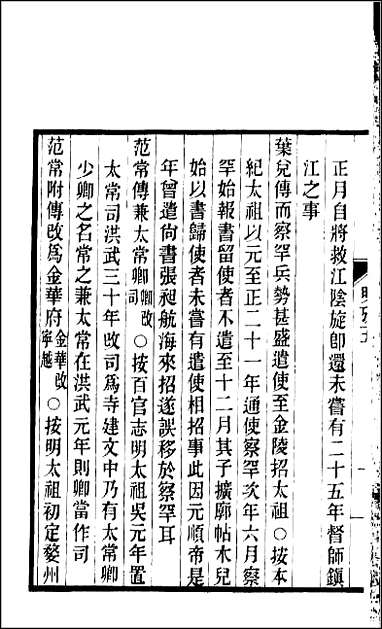 正月自將救江陰旋即還未嘗有二十五年督師鎮
江之事
葉兌傳而察罕兵勢甚盛遣使至金陵招太祖○按本
紀太祖以元至正二十一年通使察罕次年六月察
罕始報書留使者不遣至十二月其子擴廓帖木兒
始以書歸使者未嘗有遣使相招事此因元順帝是
年曾遣尚書張昶航海來招遂誤移於察罕耳
范常傳兼太常卿卿改司○按百官志明太祖吳元年置
太常司洪武三十年改司爲寺建文中乃有太常卿
少卿之名常之兼太常在洪武元年則卿當作司
范常附傳改爲金華府金華改寧越○按明太祖初定婺州